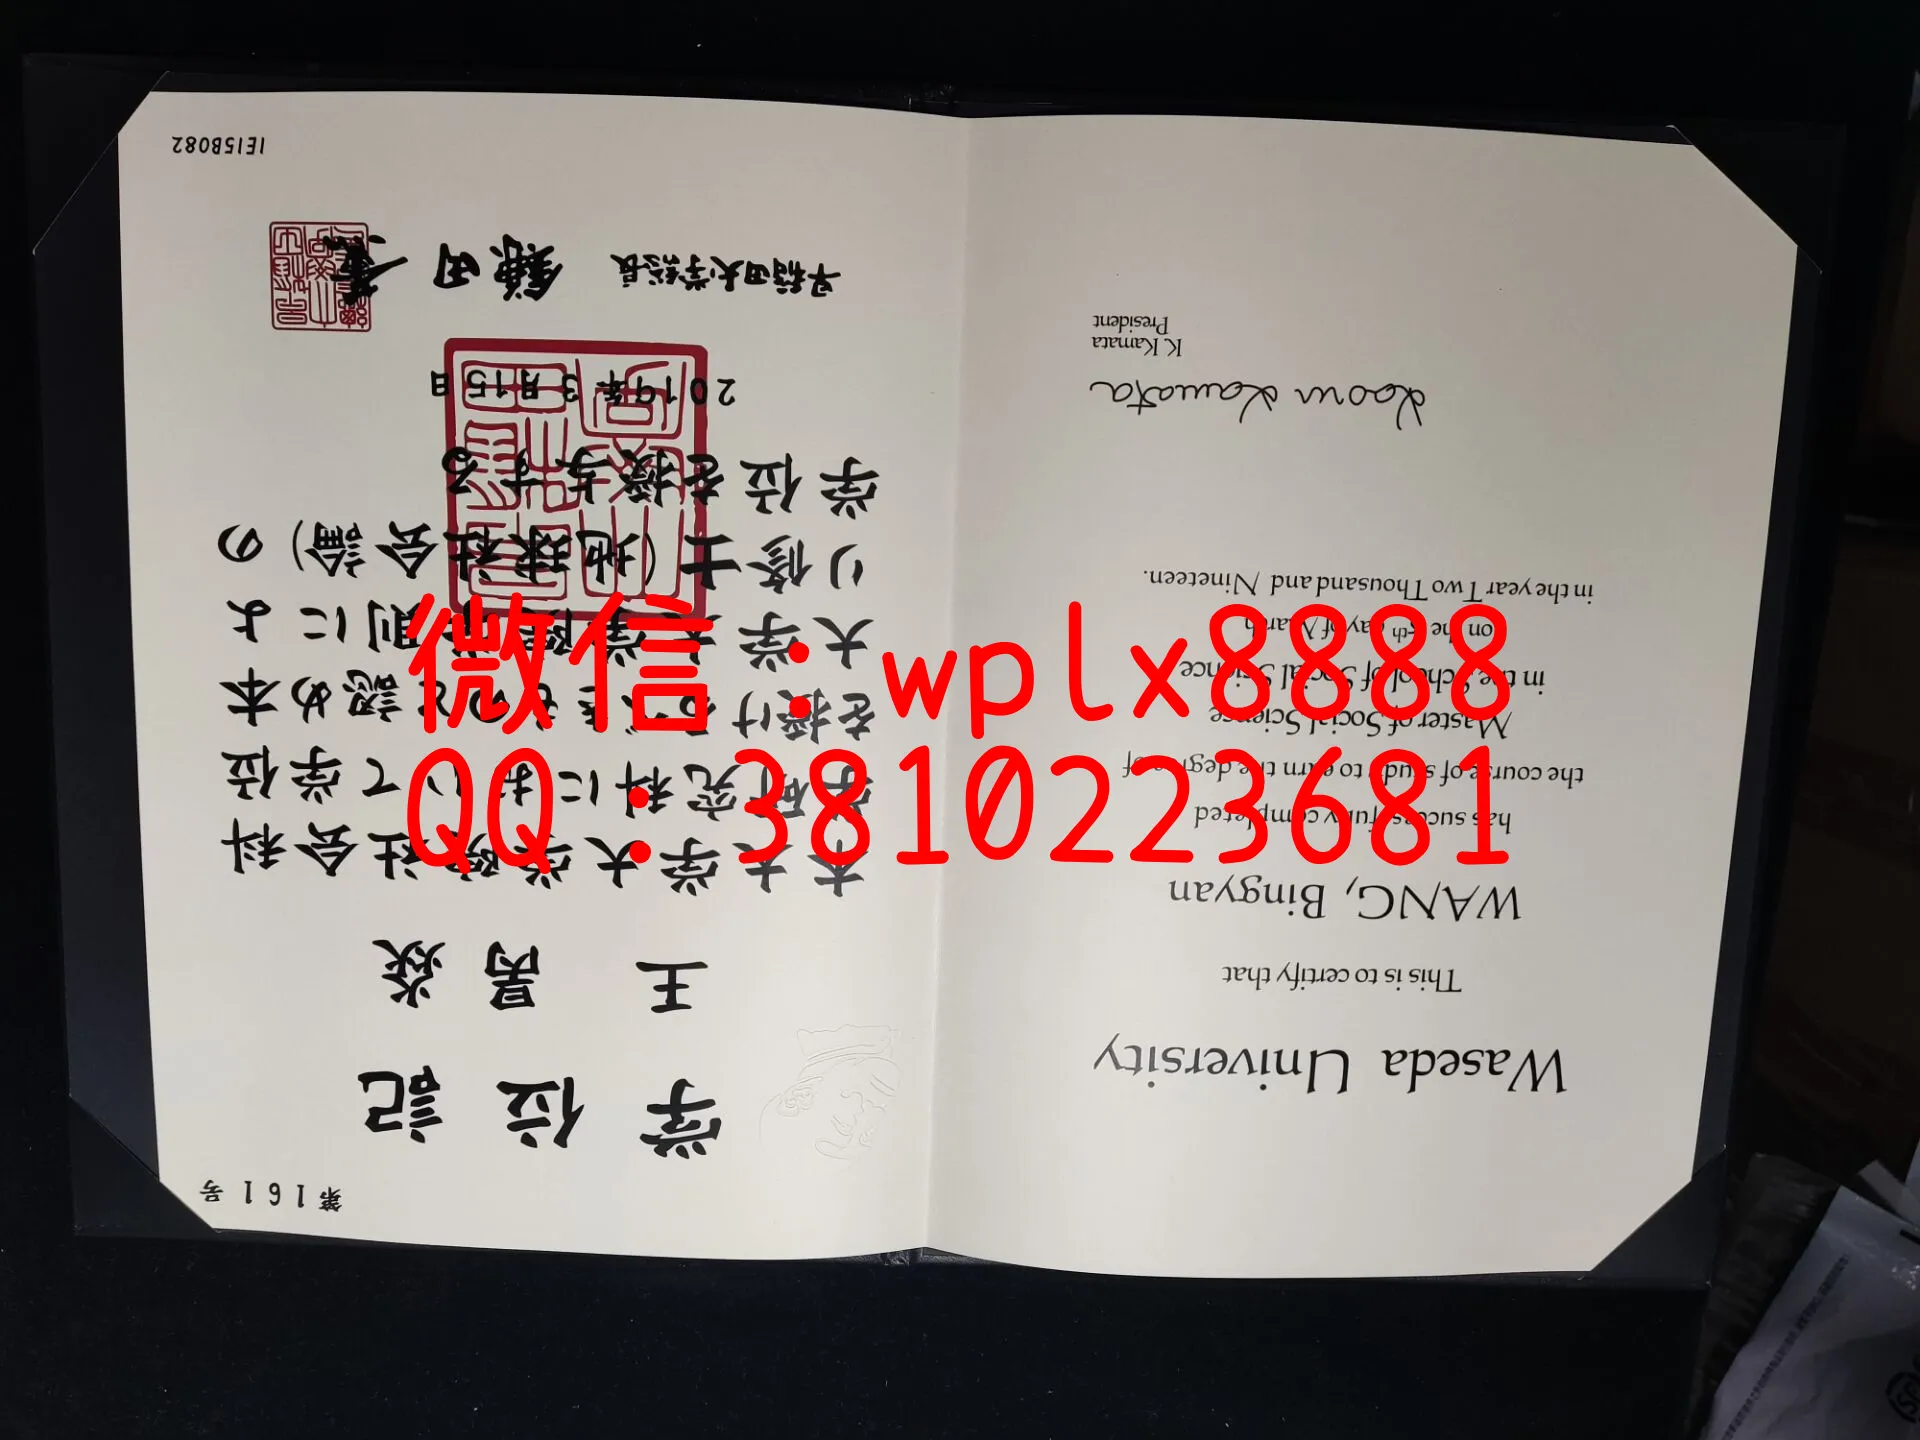 微信：wplx8888
QQ：3810223681
第161号
学位記
王 昺焱
本大学大学院社会科
学研究科において学位
を授けるべきものと認め本
大学大学院学則によ
り修士(地球社会論)の
学位を授与する
2019年3月15日
早稲田大学総長 鎌田 薫
1E15B082
Waseda University
This is to certify that
WANG, Bingyan
has successfully completed
the course of study to earn the degree of
Master of Social Science
in the School of Social Science
on the 15th day of March
in the year Two Thousand and Nineteen.
Kaoru Kamata
K. Kamata
President